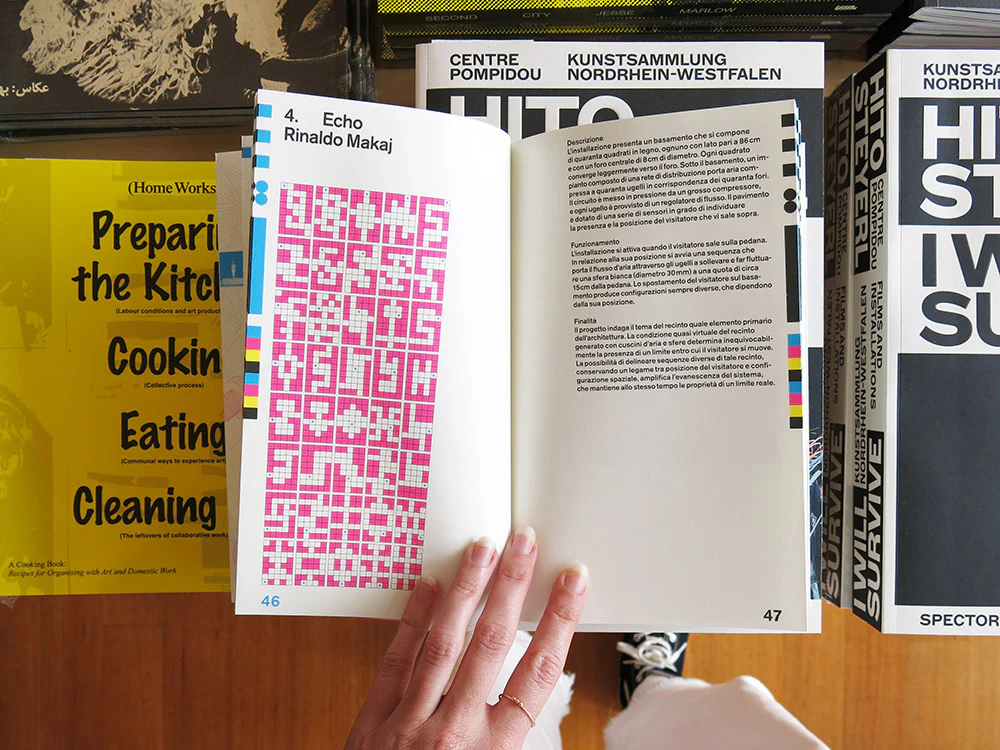 SECOND CITY JESSE MARLOW
عکاس:
CENTRE
POMPIDOU
KUNSTSAMMLUNG
NORDRHEIN-WESTFALEN
HITO
4. Echo
Rinaldo Makaj
46
Descrizione
L'installazione presenta un basamento che si compone
di quaranta quadrati in legno, ognuno con lato pari a 86 cm
e con un foro centrale di 8 cm di diametro. Ogni quadrato
converge leggermente verso il foro. Sotto il basamento, un im-
pianto composto di una rete di distribuzione porta aria com-
pressa a quaranta ugelli in corrispondenza dei quaranta fori.
Il circuito è messo in pressione da un grosso compressore,
e ogni ugello è provvisto di un regolatore di flusso. Il pavimento
è dotato di una serie di sensori in grado di individuare
la presenza e la posizione del visitatore che vi sale sopra.
Funzionamento
L'installazione si attiva quando il visitatore sale sulla pedana.
In relazione alla sua posizione si avvia una sequenza che
porta il flusso d'aria attraverso gli ugelli a sollevare e far fluttua-
re una sfera bianca (diametro 30 mm) a una quota di circa
15 cm dalla pedana. Lo spostamento del visitatore sul basa-
mento produce configurazioni sempre diverse, che dipendono
dalla sua posizione.
Finalità
Il progetto indaga il tema del recinto quale elemento primario
dell'architettura. La condizione quasi virtuale del recinto
generato con cuscini d'aria e sfere determina inequivocabil-
mente la presenza di un limite entro cui il visitatore si muove.
La possibilità di delineare sequenze diverse di tale recinto,
conservando un legame tra posizione del visitatore e confi-
gurazione spaziale, amplifica l'evanescenza del sistema,
che mantiene allo stesso tempo le proprietà di un limite reale.
47
(Home Works
Prepari
the Kitch
(Labour conditions and art product
Cookin
(Collective process)
Eating
(Communal ways to experience art
Cleaning
(The leftovers of collaborative work)
A Cooking Book:
Recipes for Organising with Art and Domestic Work
HITO
STEYERL
CENTRE
POMPIDOU
FILMS AND
INSTALLATIONS
KUNSTSAMMLUNG
NORDRHEIN-WESTFALEN
I WILL
SURVIVE
KUNSTSA
NORDRHE
HI
ST
I W
SU
SPECTOR